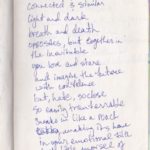 connected & similar
light and dark
breath and death
opposites, but together in
the inevitable
you love and stare
and imagine the
with confidence
but, hate, so close
so easily transferrable
like a
making its home
in your emotional